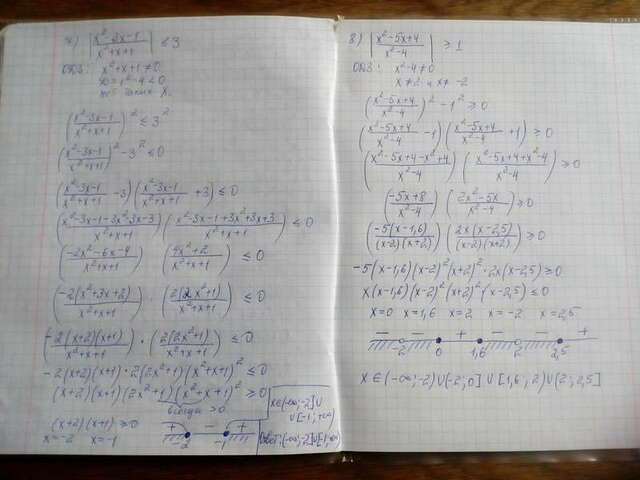 7) |(x²-3x-1)/(x²+x+1)| ≤ 3
ОДЗ: x²+x+1≠0
D=1²-4<0
нет таких x.
((x²-3x-1)/(x²+x+1))² ≤ 3²
((x²-3x-1)/(x²+x+1))² - 3² ≤ 0
((x²-3x-1)/(x²+x+1) - 3)((x²-3x-1)/(x²+x+1) + 3) ≤ 0
((x²-3x-1-3x²-3x-3)/(x²+x+1))((x²-3x-1+3x²+3x+3)/(x²+x+1)) ≤ 0
((-2x²-6x-4)/(x²+x+1))((4x²+2)/(x²+x+1)) ≤ 0
(-2(x²+3x+2)/(x²+x+1)) · (2(2x²+1)/(x²+x+1)) ≤ 0
(-2(x+2)(x+1)/(x²+x+1)) · (2(2x²+1)/(x²+x+1)) ≤ 0
-2(x+2)(x+1)·2(2x²+1)(x²+x+1)² ≤ 0
(x+2)(x+1)(2x²+1)(x²+x+1)² ≥ 0
всегда >0
(x+2)(x+1) ≥ 0
x=-2 x=-1
+ - +
-2 -1
x∈(-∞;-2]∪
∪[-1;+∞)
Ответ: (-∞;-2]∪[-1;+∞)
8) |(x²-5x+4)/(x²-4)| ≥ 1
ОДЗ: x²-4≠0
x≠2 и x≠-2
((x²-5x+4)/(x²-4))² - 1² ≥ 0
((x²-5x+4)/(x²-4) - 1)((x²-5x+4)/(x²-4) + 1) ≥ 0
((x²-5x+4-x²+4)/(x²-4))((x²-5x+4+x²-4)/(x²-4)) ≥ 0
((-5x+8)/(x²-4))((2x²-5x)/(x²-4)) ≥ 0
(-5(x-1,6)/((x-2)(x+2)))(2x(x-2,5)/((x-2)(x+2))) ≥ 0
-5(x-1,6)(x-2)²(x+2)²·2x(x-2,5) ≥ 0
x(x-1,6)(x-2)²(x+2)²(x-2,5) ≤ 0
x=0 x=1,6 x=2 x=-2 x=2,5
- - + - - +
-2 0 1,6 2 2,5
x∈(-∞;-2)∪(-2;0]∪[1,6;2)∪(2;2,5]